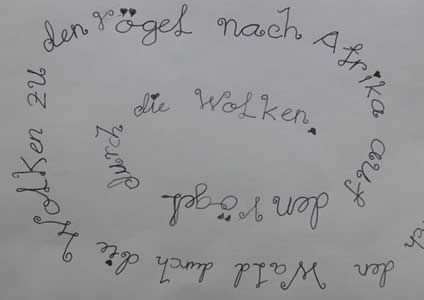 den Wald durch die Wolken zu den Vögel nach Afrika auf den Vögel durch die Wolken.